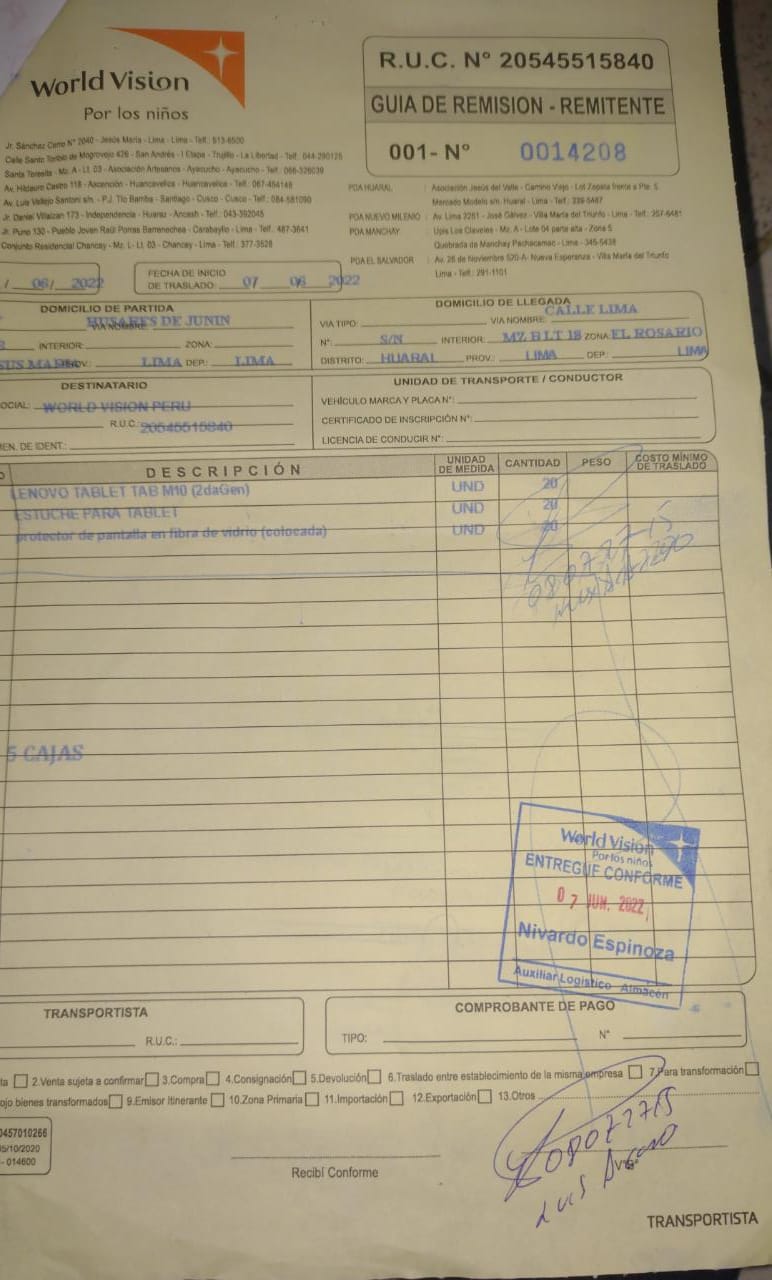 World Vision
Por los niños
R.U.C. N° 20545515840
GUIA DE REMISION - REMITENTE
001- N° 0014208
Jr. Sánchez Cerro N° 2040 - Jesús María - Lima - Lima - Telf.: 513-6500
Calle Santo Toribio de Mogrovejo 426 - San Andrés - I Etapa - Trujillo - La Libertad - Telf.: 044-290125
Santa Teresita - Mz. A - Lt. 03 - Asociación Artesanos - Ayacucho - Ayacucho - Telf.: 066-326039
Av. Hildauro Castro 118 - Ascención - Huancavelica - Huancavelica - Telf.: 067-454148
Av. Luis Vallejo Santoni s/n. - P.J. Tío Bamba - Santiago - Cusco - Cusco - Telf.: 084-581090
Jr. Daniel Villaizan 173 - Independencia - Huaraz - Ancash - Telf.: 043-392045
Jr. Puno 130 - Pueblo Joven Raúl Porras Barrenechea - Carabayllo - Lima - Telf.: 487-3641
Conjunto Residencial Chancay - Mz. L - Lt. 03 - Chancay - Lima - Telf.: 377-3528
PDA HUARAL : Asociación Jesús del Valle - Camino Viejo - Lot Zapata frente a Pte. 5
Mercado Modelo s/n. Huaral - Lima - Telf.:
PDA NUEVO MILENIO : Av. Lima 3281 - José Gálvez - Villa María del Triunfo - Lima - Telf.: 257-6481
PDA MANCHAY : Upis Los Claveles - Mz. A - Lote 04 parte alta - Zona 5
Quebrada de Manchay Pachacamac - Lima - 345-5438
PDA EL SALVADOR : Av. 26 de Noviembre 520-A- Nueva Esperanza - Villa María del Triunfo
Lima - Telf.: 291-1101
/ 06/ 2022
FECHA DE INICIO
DE TRASLADO: 07 06 2022
DOMICILIO DE PARTIDA
VIA NOMBRE: HUSARES DE JUNIN
INTERIOR: ZONA:
SUS MARIA PROV.: LIMA DEP.: LIMA
DOMICILIO DE LLEGADA
VIA TIPO: VIA NOMBRE: CALLE LIMA
N°: S/N INTERIOR: MZ B LT 18 ZONA: EL ROSARIO
DISTRITO: HUARAL PROV.: LIMA DEP: LIMA
DESTINATARIO
OCIAL: WORLD VISION PERU
R.U.C.: 20545515840
EN. DE IDENT.:
UNIDAD DE TRANSPORTE / CONDUCTOR
VEHÍCULO MARCA Y PLACA N°:
CERTIFICADO DE INSCRIPCIÓN N°:
LICENCIA DE CONDUCIR N°:
O DESCRIPCIÓN UNIDAD DE MEDIDA CANTIDAD PESO COSTO MÍNIMO DE TRASLADO
LENOVO TABLET TAB M10 (2daGen) UND 20
ESTUCHE PARA TABLET UND 20
protector de pantalla en fibra de vidrio (colocada) UND 20
08072715
5 CAJAS
World Vision
Por los niños
ENTREGUE CONFORME
07 JUN. 2022
Nivardo Espinoza
Auxiliar Logístico Almacén
TRANSPORTISTA
R.U.C.:
COMPROBANTE DE PAGO
TIPO: N°
ta 2.Venta sujeta a confirmar 3.Compra 4.Consignación 5.Devolución 6.Traslado entre establecimiento de la misma empresa 7.Para transformación
ojo bienes transformados 9.Emisor Itinerante 10.Zona Primaria 11.Importación 12.Exportación 13.Otros
0457010266
5/10/2020
- 014600
Recibí Conforme
08072715
LUIS
V°B°
TRANSPORTISTA